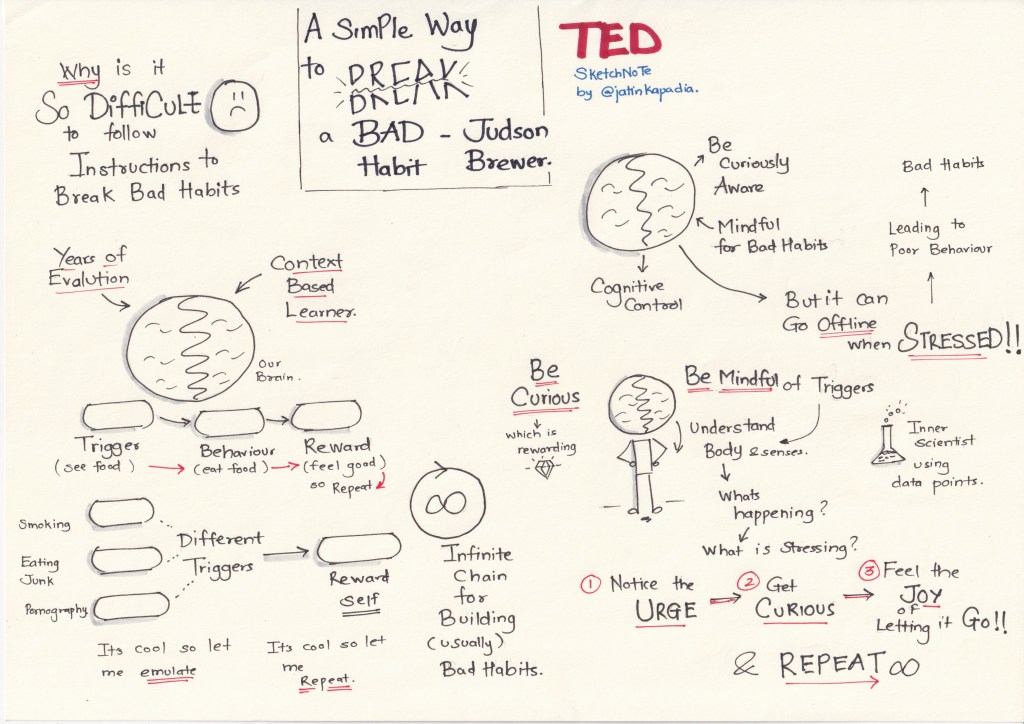 A SimPle Way
to BREAK
a BAD - Judson
Habit Brewer.
TED
SketchNoTe
by @jatinkapadia.
Why is it
So DiffiCulT
to follow
Instructions to
Break Bad Habits
Years of
Evalution
Context
Based
Learner.
Our
Brain.
Trigger
(see food)
Behaviour
(eat food)
Reward
(feel good)
so
Repeat
Smoking
Eating
Junk
Pornography
Different
Triggers
Reward
Self
Its cool so let
me emulate
Its cool so let
me
Repeat.
∞
Infinite
Chain
for
Building
(usually)
Bad Habits.
Be
Curiously
Aware
Mindful
for Bad Habits
Cognitive
Control
But it can
Go Offline
when STRESSED!!
Leading to
Poor Behaviour
Bad Habits
Be
Curious
which is
rewarding
Be Mindful of Triggers
Understand
Body & senses.
Whats
happening?
What is Stressing?
Inner
Scientist
using
data points.
1 Notice the
URGE
2 Get
CURIOUS
3 Feel the
JOY
of
Letting it Go!!
& REPEAT ∞